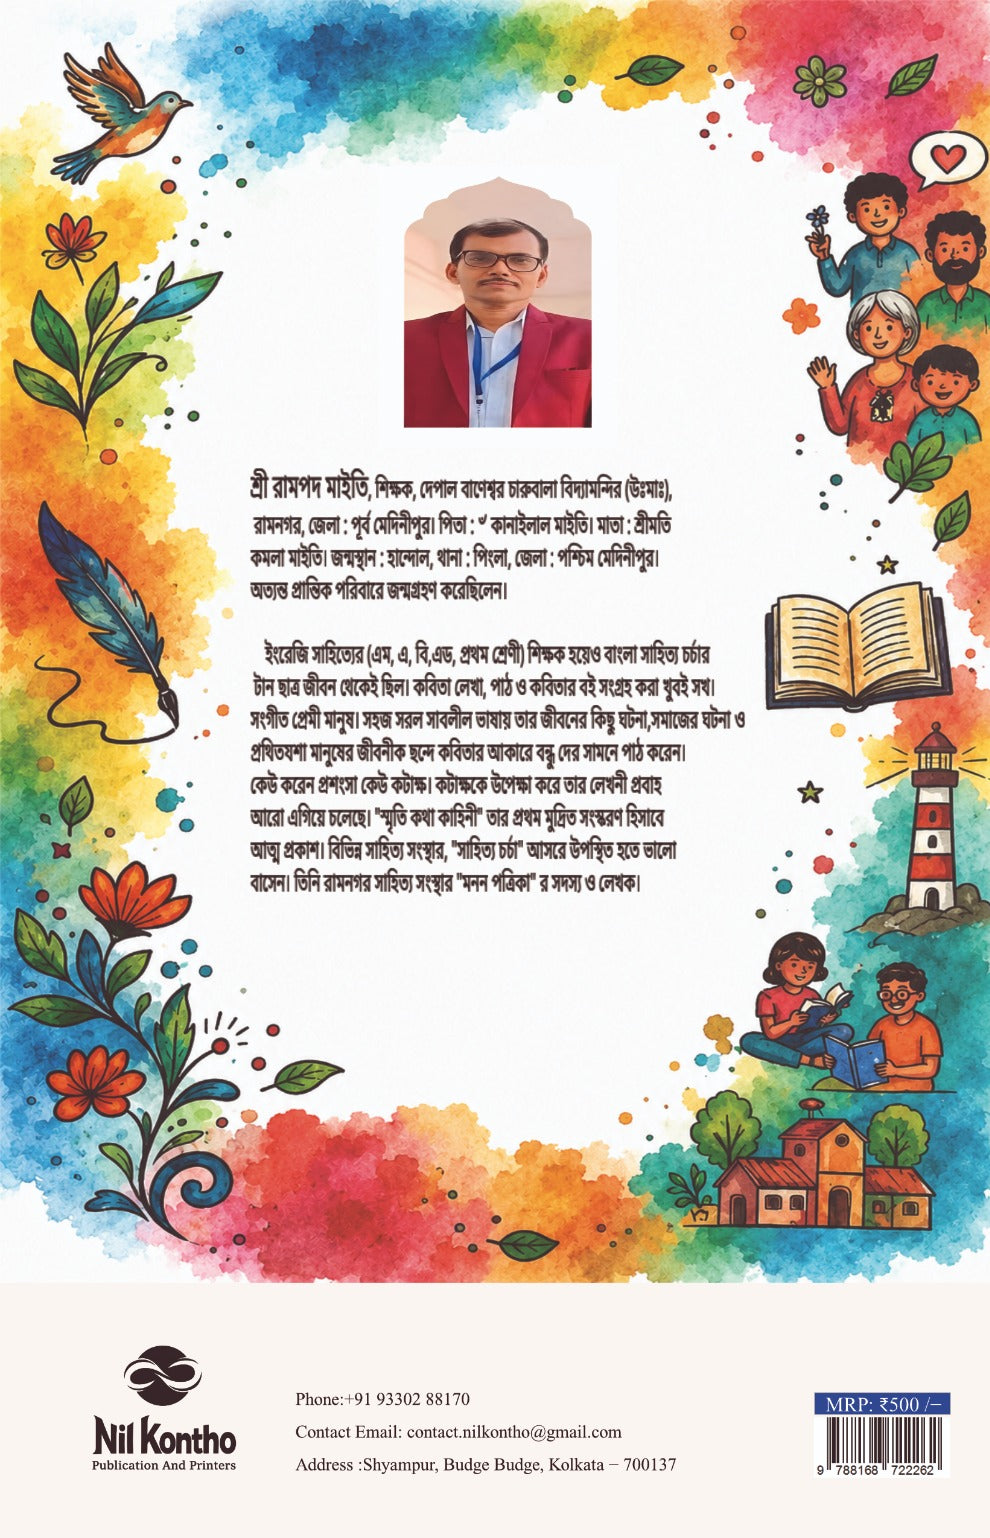 শ্রী রামপদ মাইতি, শিক্ষক, দেপাল বাণেশ্বর চারুবালা বিদ্যামন্দির (উঃমাঃ),
রামনগর, জেলা : পূর্ব মেদিনীপুর। পিতা : ঁ কানাইলাল মাইতি। মাতা : শ্রীমতি
কমলা মাইতি। জন্মস্থান : হান্দোল, থানা : পিংলা, জেলা : পশ্চিম মেদিনীপুর।
অত্যন্ত প্রান্তিক পরিবারে জন্মগ্রহণ করেছিলেন।
ইংরেজি সাহিত্যের (এম, এ, বি,এড, প্রথম শ্রেণী) শিক্ষক হয়েও বাংলা সাহিত্য চর্চার
টান ছাত্র জীবন থেকেই ছিল। কবিতা লেখা, পাঠ ও কবিতার বই সংগ্রহ করা খুবই সখ।
সংগীত প্রেমী মানুষ। সহজ সরল সাবলীল ভাষায় তার জীবনের কিছু ঘটনা,সমাজের ঘটনা ও
প্রথিতযশা মানুষের জীবনীক ছন্দে কবিতার আকারে বন্ধু দের সামনে পাঠ করেন।
কেউ করেন প্রশংসা কেউ কটাক্ষ। কটাক্ষকে উপেক্ষা করে তার লেখনী প্রবাহ
আরো এগিয়ে চলেছে। "স্মৃতি কথা কাহিনী" তার প্রথম মুদ্রিত সংস্করণ হিসাবে
আত্ম প্রকাশ। বিভিন্ন সাহিত্য সংস্থার, "সাহিত্য চর্চা" আসরে উপস্থিত হতে ভালো
বাসেন। তিনি রামনগর সাহিত্য সংস্থার "মনন পত্রিকা" র সদস্য ও লেখক।
Nil Kontho
Publication And Printers
Phone:+91 93302 88170
Contact Email: contact.nilkontho@gmail.com
Address :Shyampur, Budge Budge, Kolkata − 700137
MRP: ₹500 /−
9 788168 722262